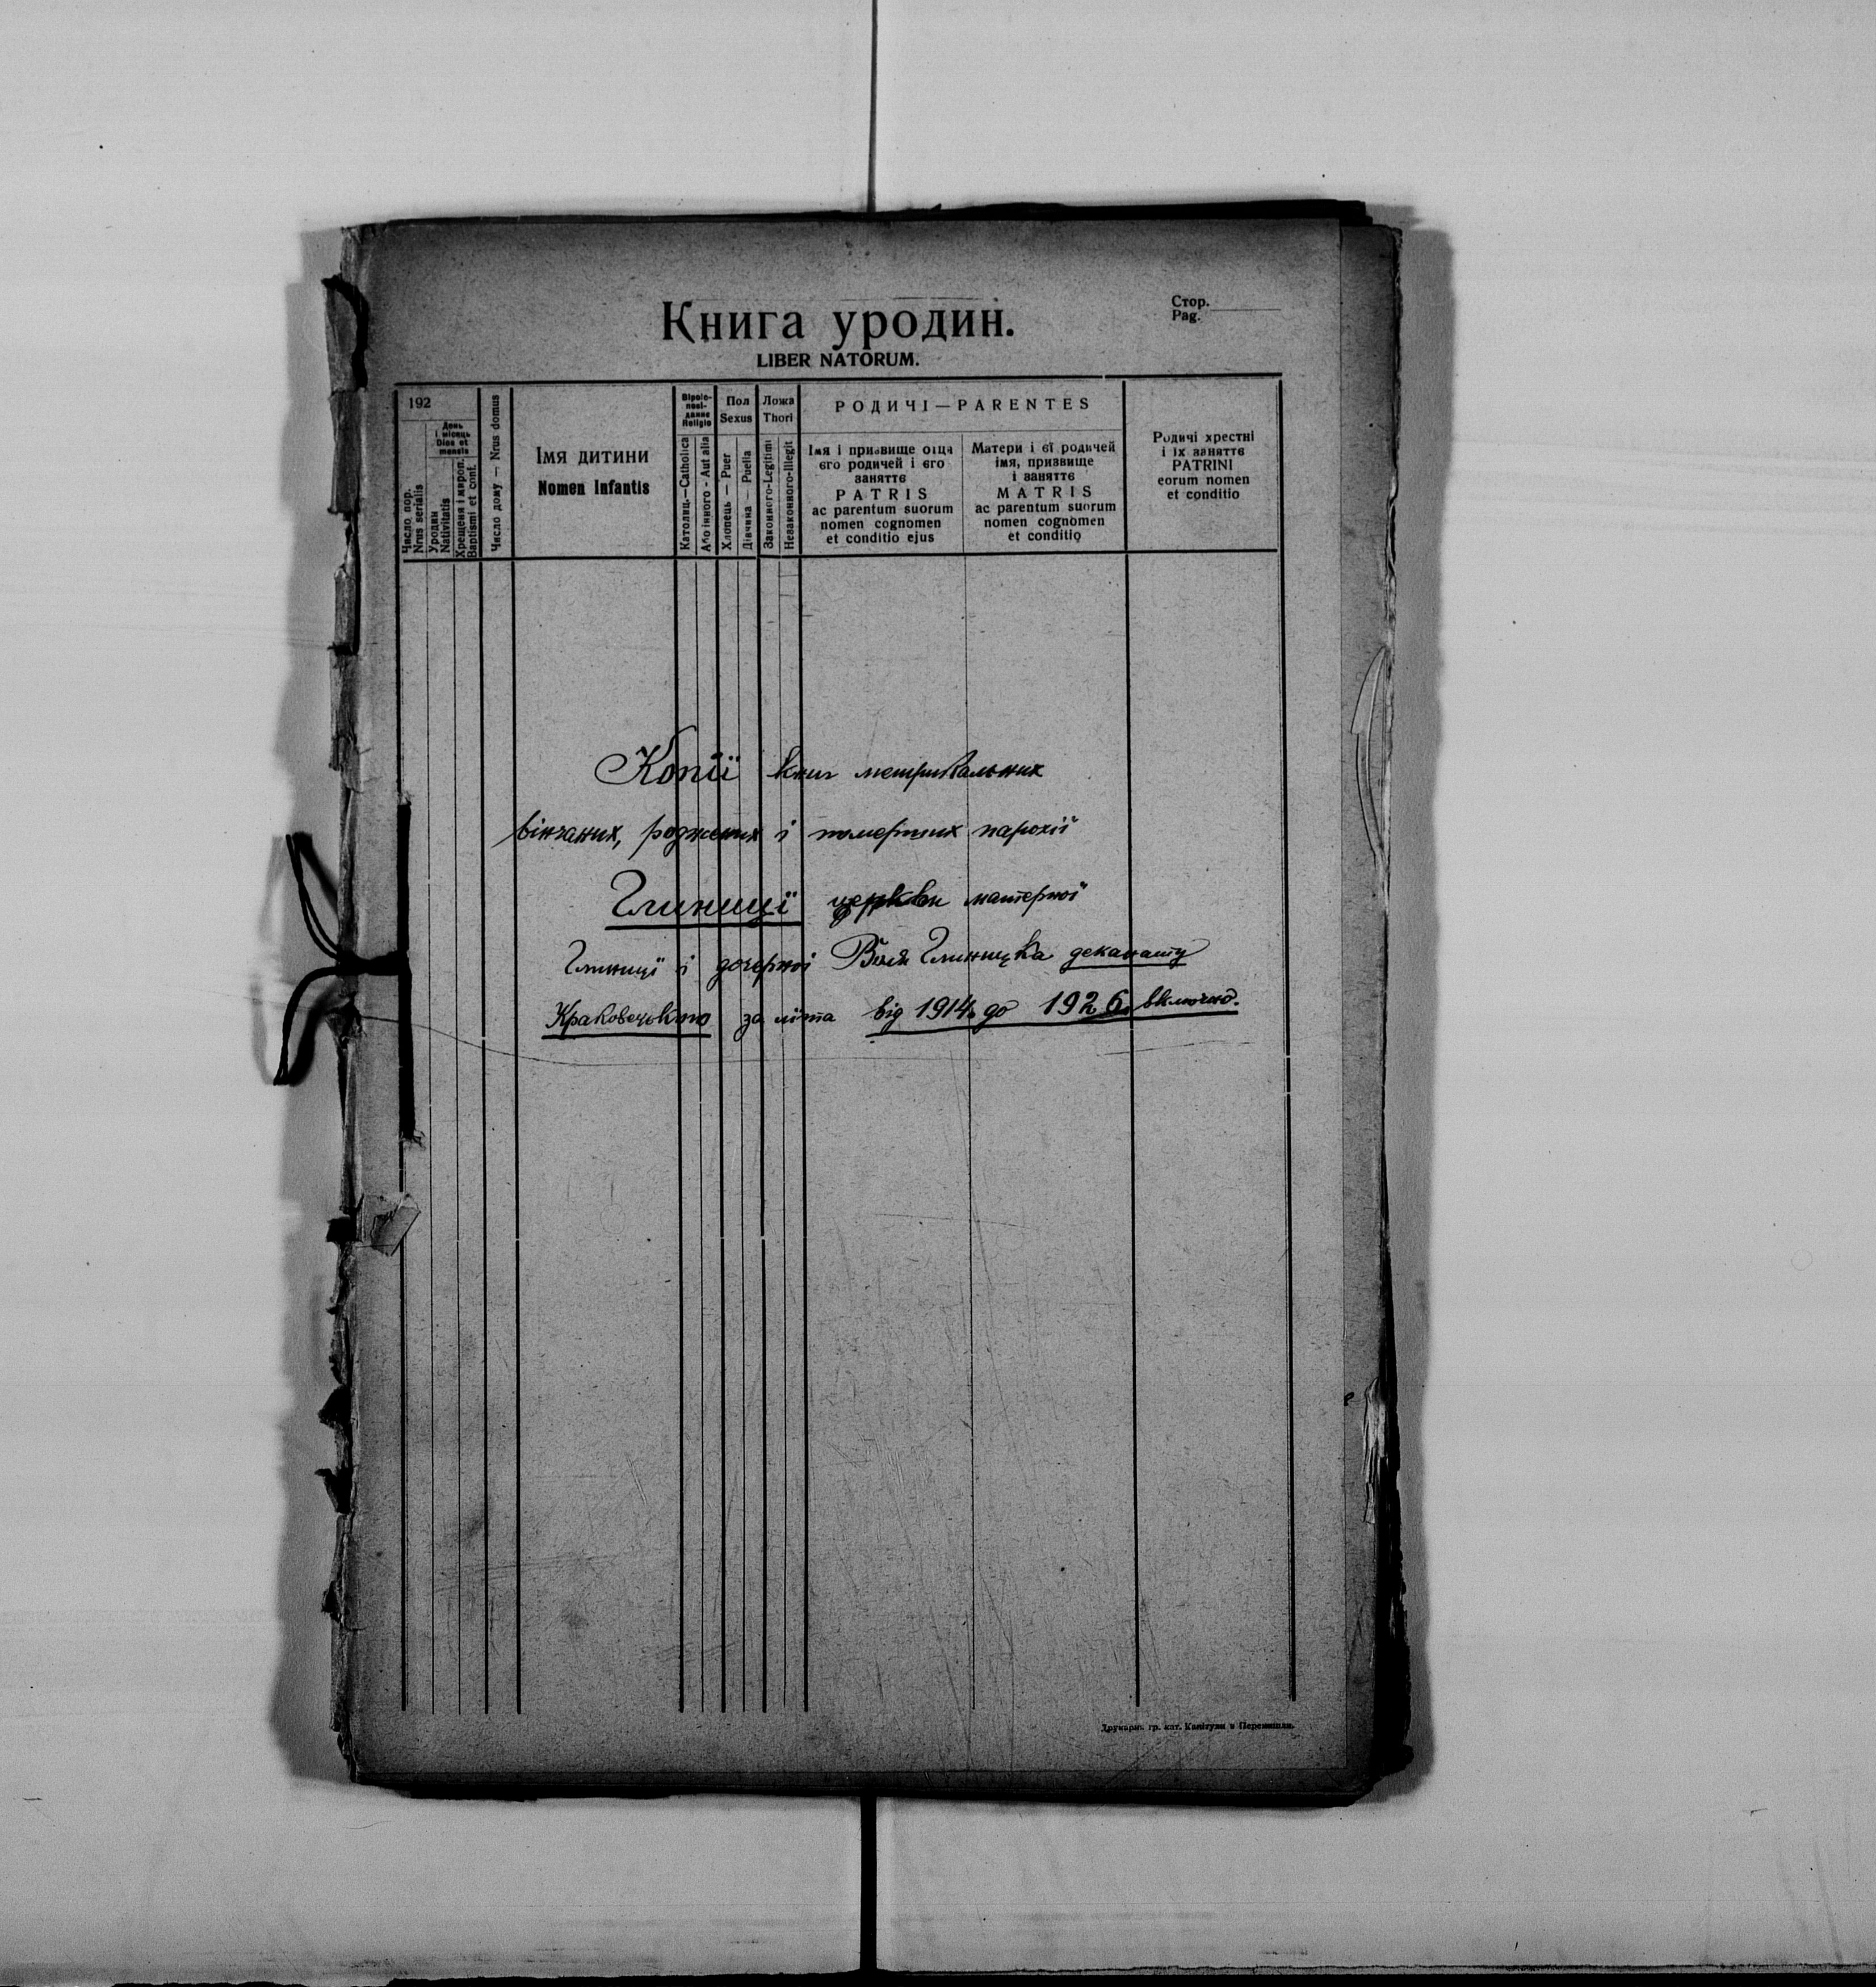 Книга уродин.
LIBER NATORUM.
Стор.
Pag.
192
День
і місяць
Dies et
mensis
Число пор.
Nrus serialis
Уродин
Nativitatis
Хрещеня і мироп.
Baptismi et conf.
Число дому — Nrus domus
Імя дитини
Nomen Infantis
Віроіс-
пові-
данне
Religio
Католиц.—Catholica
Або інного - Aut alia
Пол
Sexus
Хлопець — Puer
Дівчина — Puella
Ложа
Thori
Законного-Legitimi
Незаконного-Illegit
РОДИЧІ—PARENTES
Імя і призвище отця
єго родичей і єго
занятте
PATRIS
ac parentum suorum
nomen cognomen
et conditio ejus
Матери і єї родичей
імя, призвище
і занятте
MATRIS
ac parentum suorum
nomen cognomen
et conditio
Родичі хрестні
і їх занятте
PATRINI
eorum nomen
et conditio
Копії книг метрикальних
вінчаних, роджених і померших парохії
Глиниці церкви матерної
Глиниці і дочерної Воля Глиницка деканату
Краковецького за літа від 1914. до 1926. включно.
Друкарня гр. кат. Капітули в Перемишли.